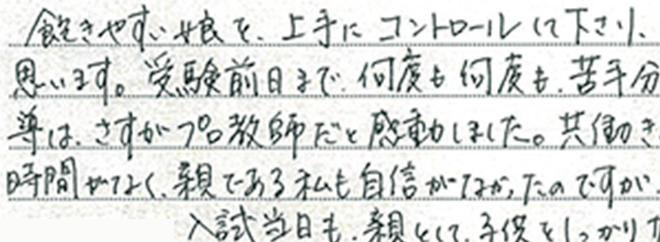 飽きやすい娘を、上手にコントロールして下さり、
思います。受験前日まで、何度も何度も、苦手分
導は、さすがプロ教師だと感動しました。共働き
時間がなく、親である私も自信がなかったのですが、
入試当日も、親として、子供をしっかり